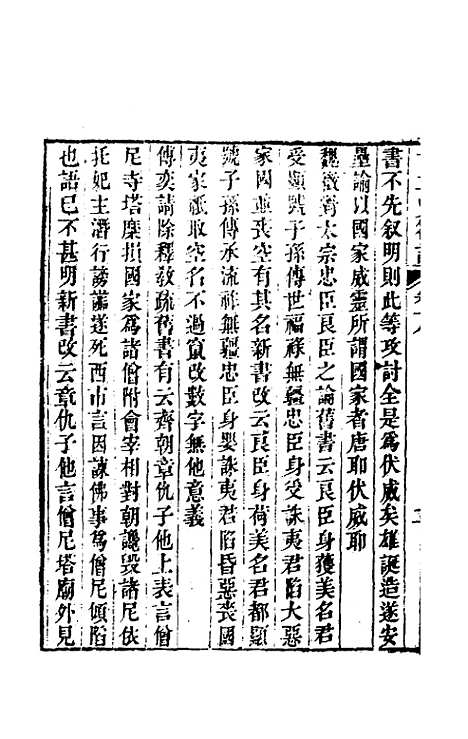 書不先叙明則此等攻討全是為伏威矣雄誕造遂安
壘諭以國家威靈所謂國家者唐耶伏威耶
魏徵對太宗忠臣良臣之論舊書云良臣身獲美名君
受顯號子孫傳世福祿無疆忠臣身受誅夷君陷大惡
家國並喪空有其名新書改云良臣身荷美名君都顯
號子孫傳承流祚無疆忠臣身嬰誅夷君陷昏惡喪國
夷家祇取空名不過竄改數字無他意義
傅奕請除釋敎疏舊書有云齊朝章仇子他上表言僧
尼寺塔糜損國家為諸僧附會宰相對朝讒毀諸尼依
托妃主潛行謗讟遂死西市言因諫佛事為僧尼傾陷
也語已不甚明新書改云章仇子他言僧尼塔廟外見